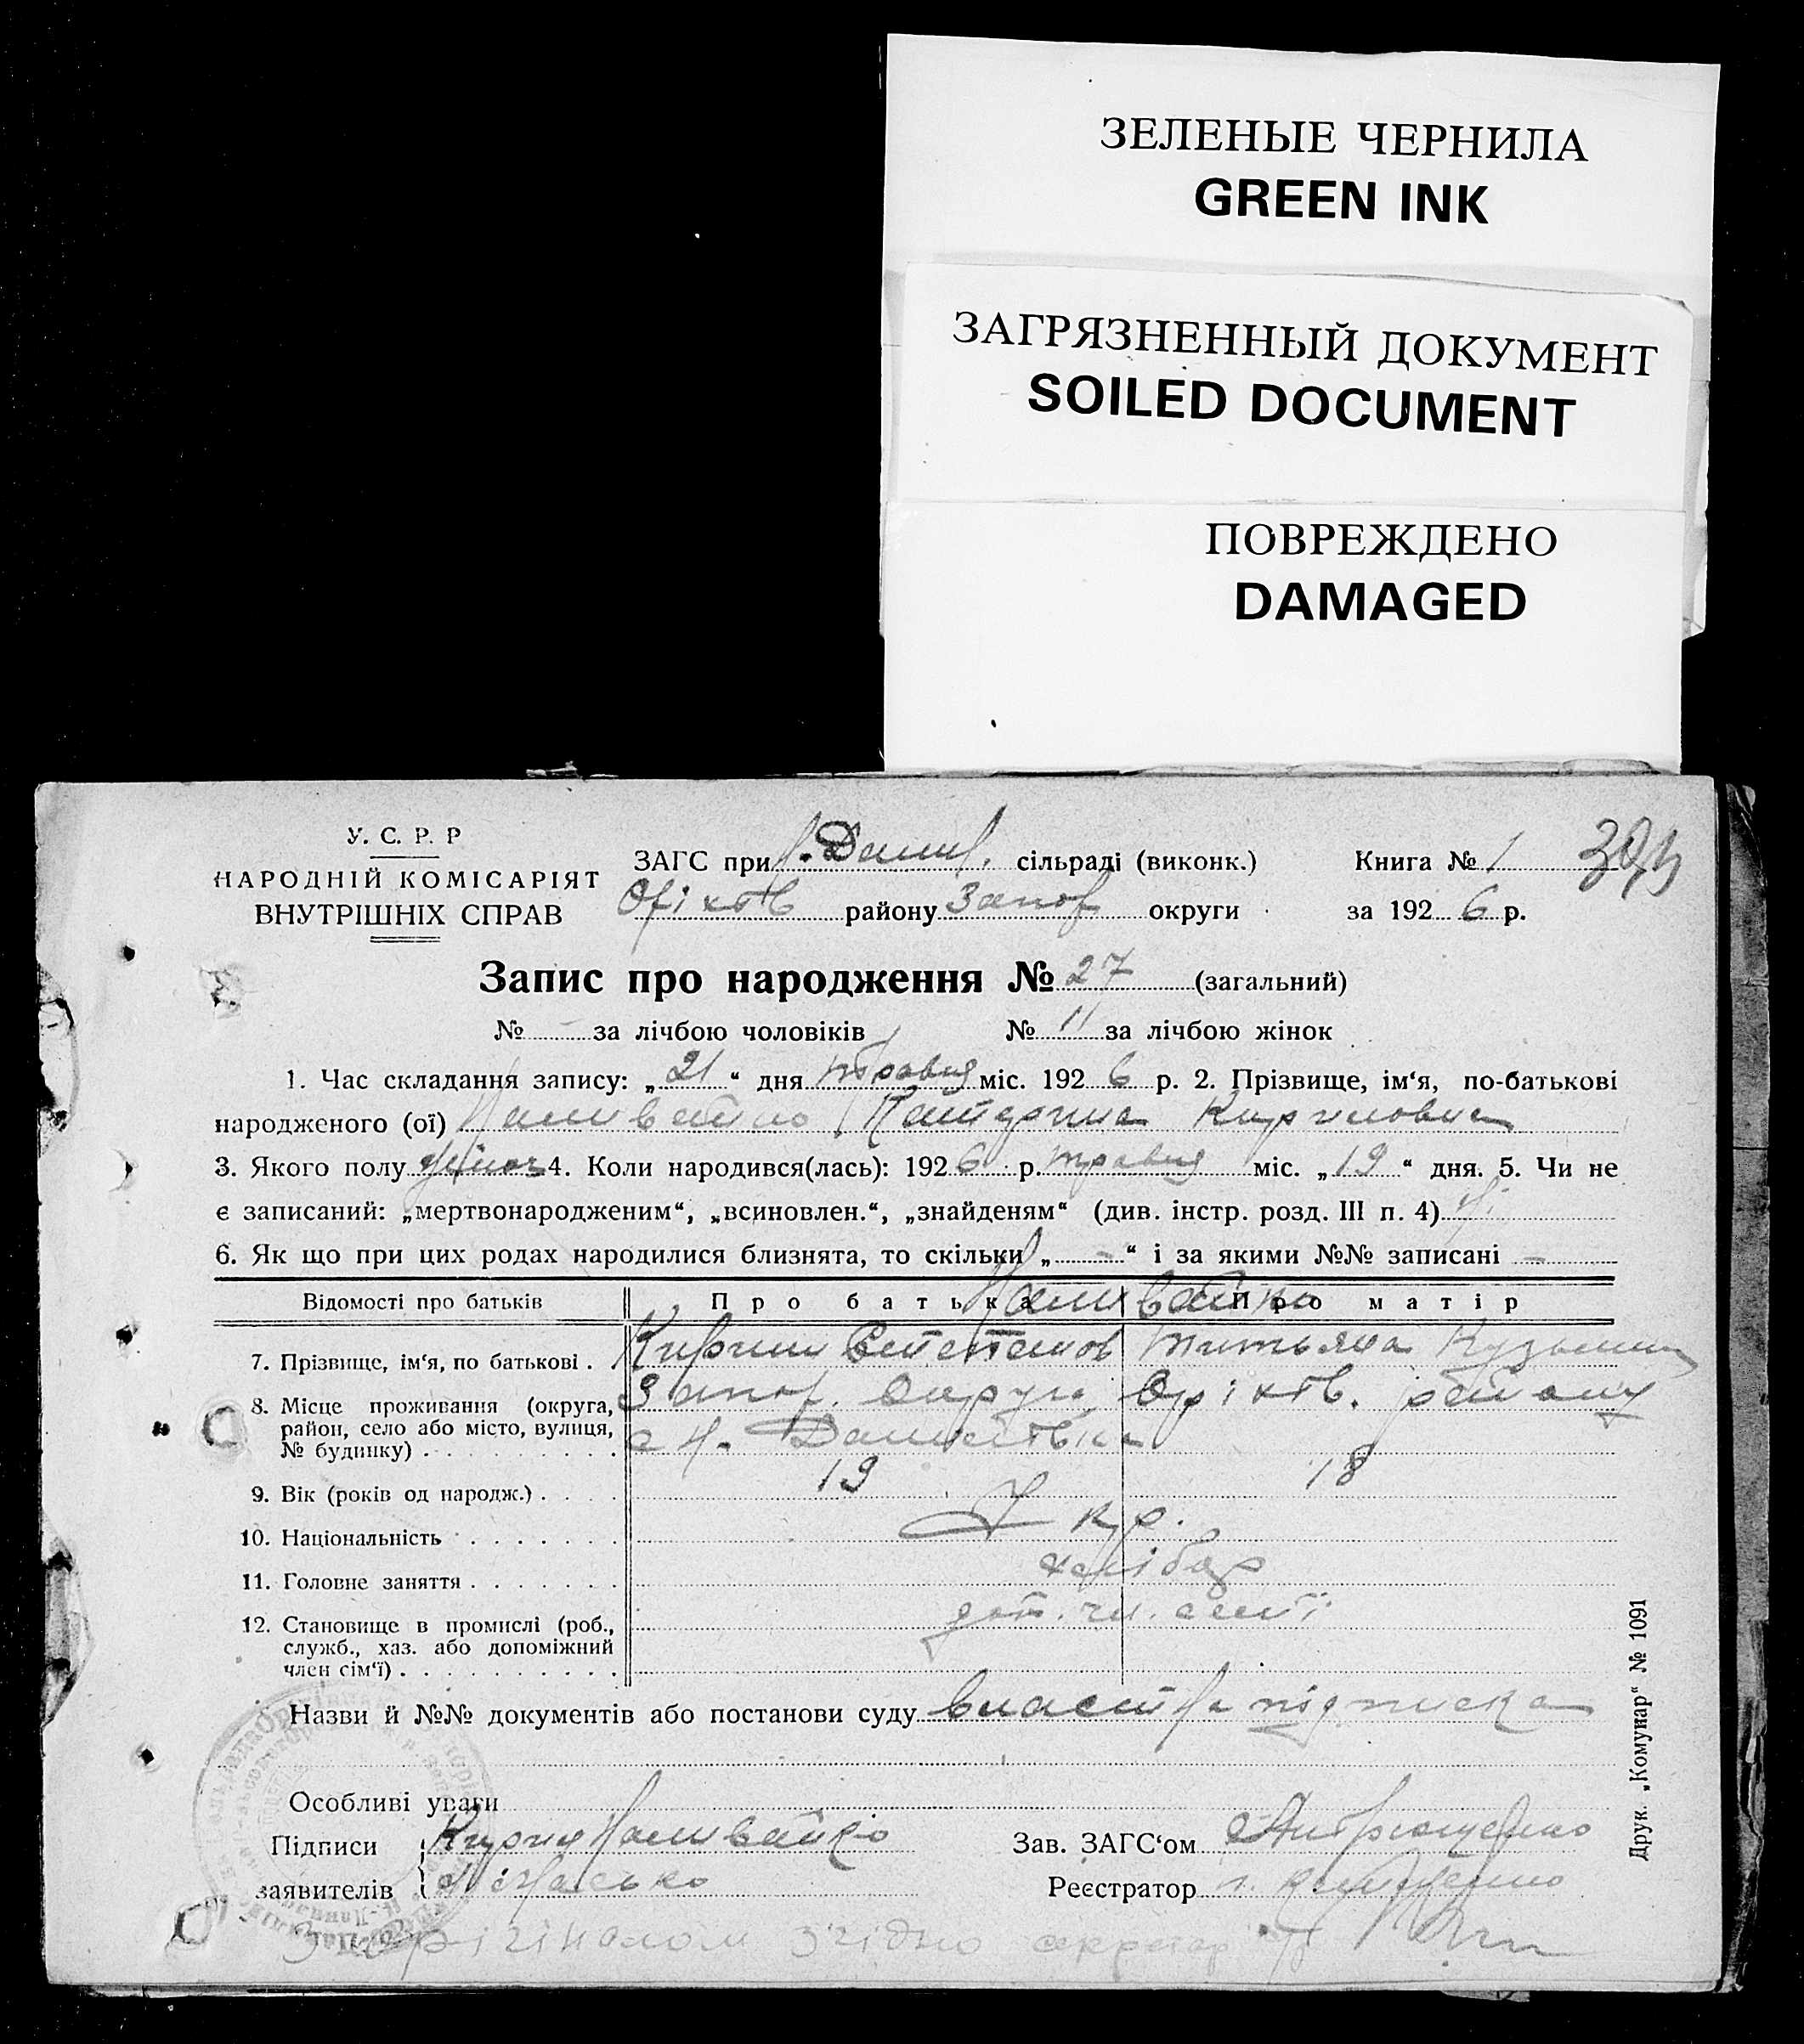 ЗЕЛЕНЫЕ ЧЕРНИЛА
GREEN INK
ЗАГРЯЗНЕННЫЙ ДОКУМЕНТ
SOILED DOCUMENT
ПОВРЕЖДЕНО
DAMAGED
У. С. Р. Р
НАРОДНІЙ КОМІСАРІЯТ
ВНУТРІШНІХ СПРАВ
ЗАГС при сільраді (виконк.) Книга № 1
району Запор округи за 192 6 р.
Запис про народження № 27 (загальний)
№ - за лічбою чоловіків № 11 за лічбою жінок
1. Час складання запису: „ 21 “ дня травня міс. 192 6 р. 2. Прізвище, ім‘я, по-батькові
народженого (ої) Наливайко Катерина Кириловна
3. Якого полу жіноч 4. Коли народився(лась): 192 6 р. травня міс. „ 19 “ дня. 5. Чи не
є записаний: „мертвонародженим“, „всиновлен.“, „знайденям“ (див. інстр. розд. III п. 4) Ні
6. Як що при цих родах народилися близнята, то скільки „ - “ і за якими №№ записані -
Відомості про батьків Про батька Про матір
Наливайко
7. Прізвище, ім‘я, по батькові . Кирил Титьяна Кузьмин
8. Місце проживання (округа, район, село або місто, вулиця, № будинку) Запор. Округи, Оріхів. району
с Н. Данилівка
9. Вік (років од народж.) 19 18
10. Національність Укр.
11. Головне заняття хлібор
12. Становище в промислі (роб., служб., хаз. або допоміжний член сім‘ї) доп. чл. семї
Назви й №№ документів або постанови суду власна підписка
Особливі уваги
Підписи заявителів Кирил Наливайко
Зав. ЗАГС‘ом Андрющенко
Реєстратор
З орігіналом згідно секретар
Друк. „Комунар“ № 1091